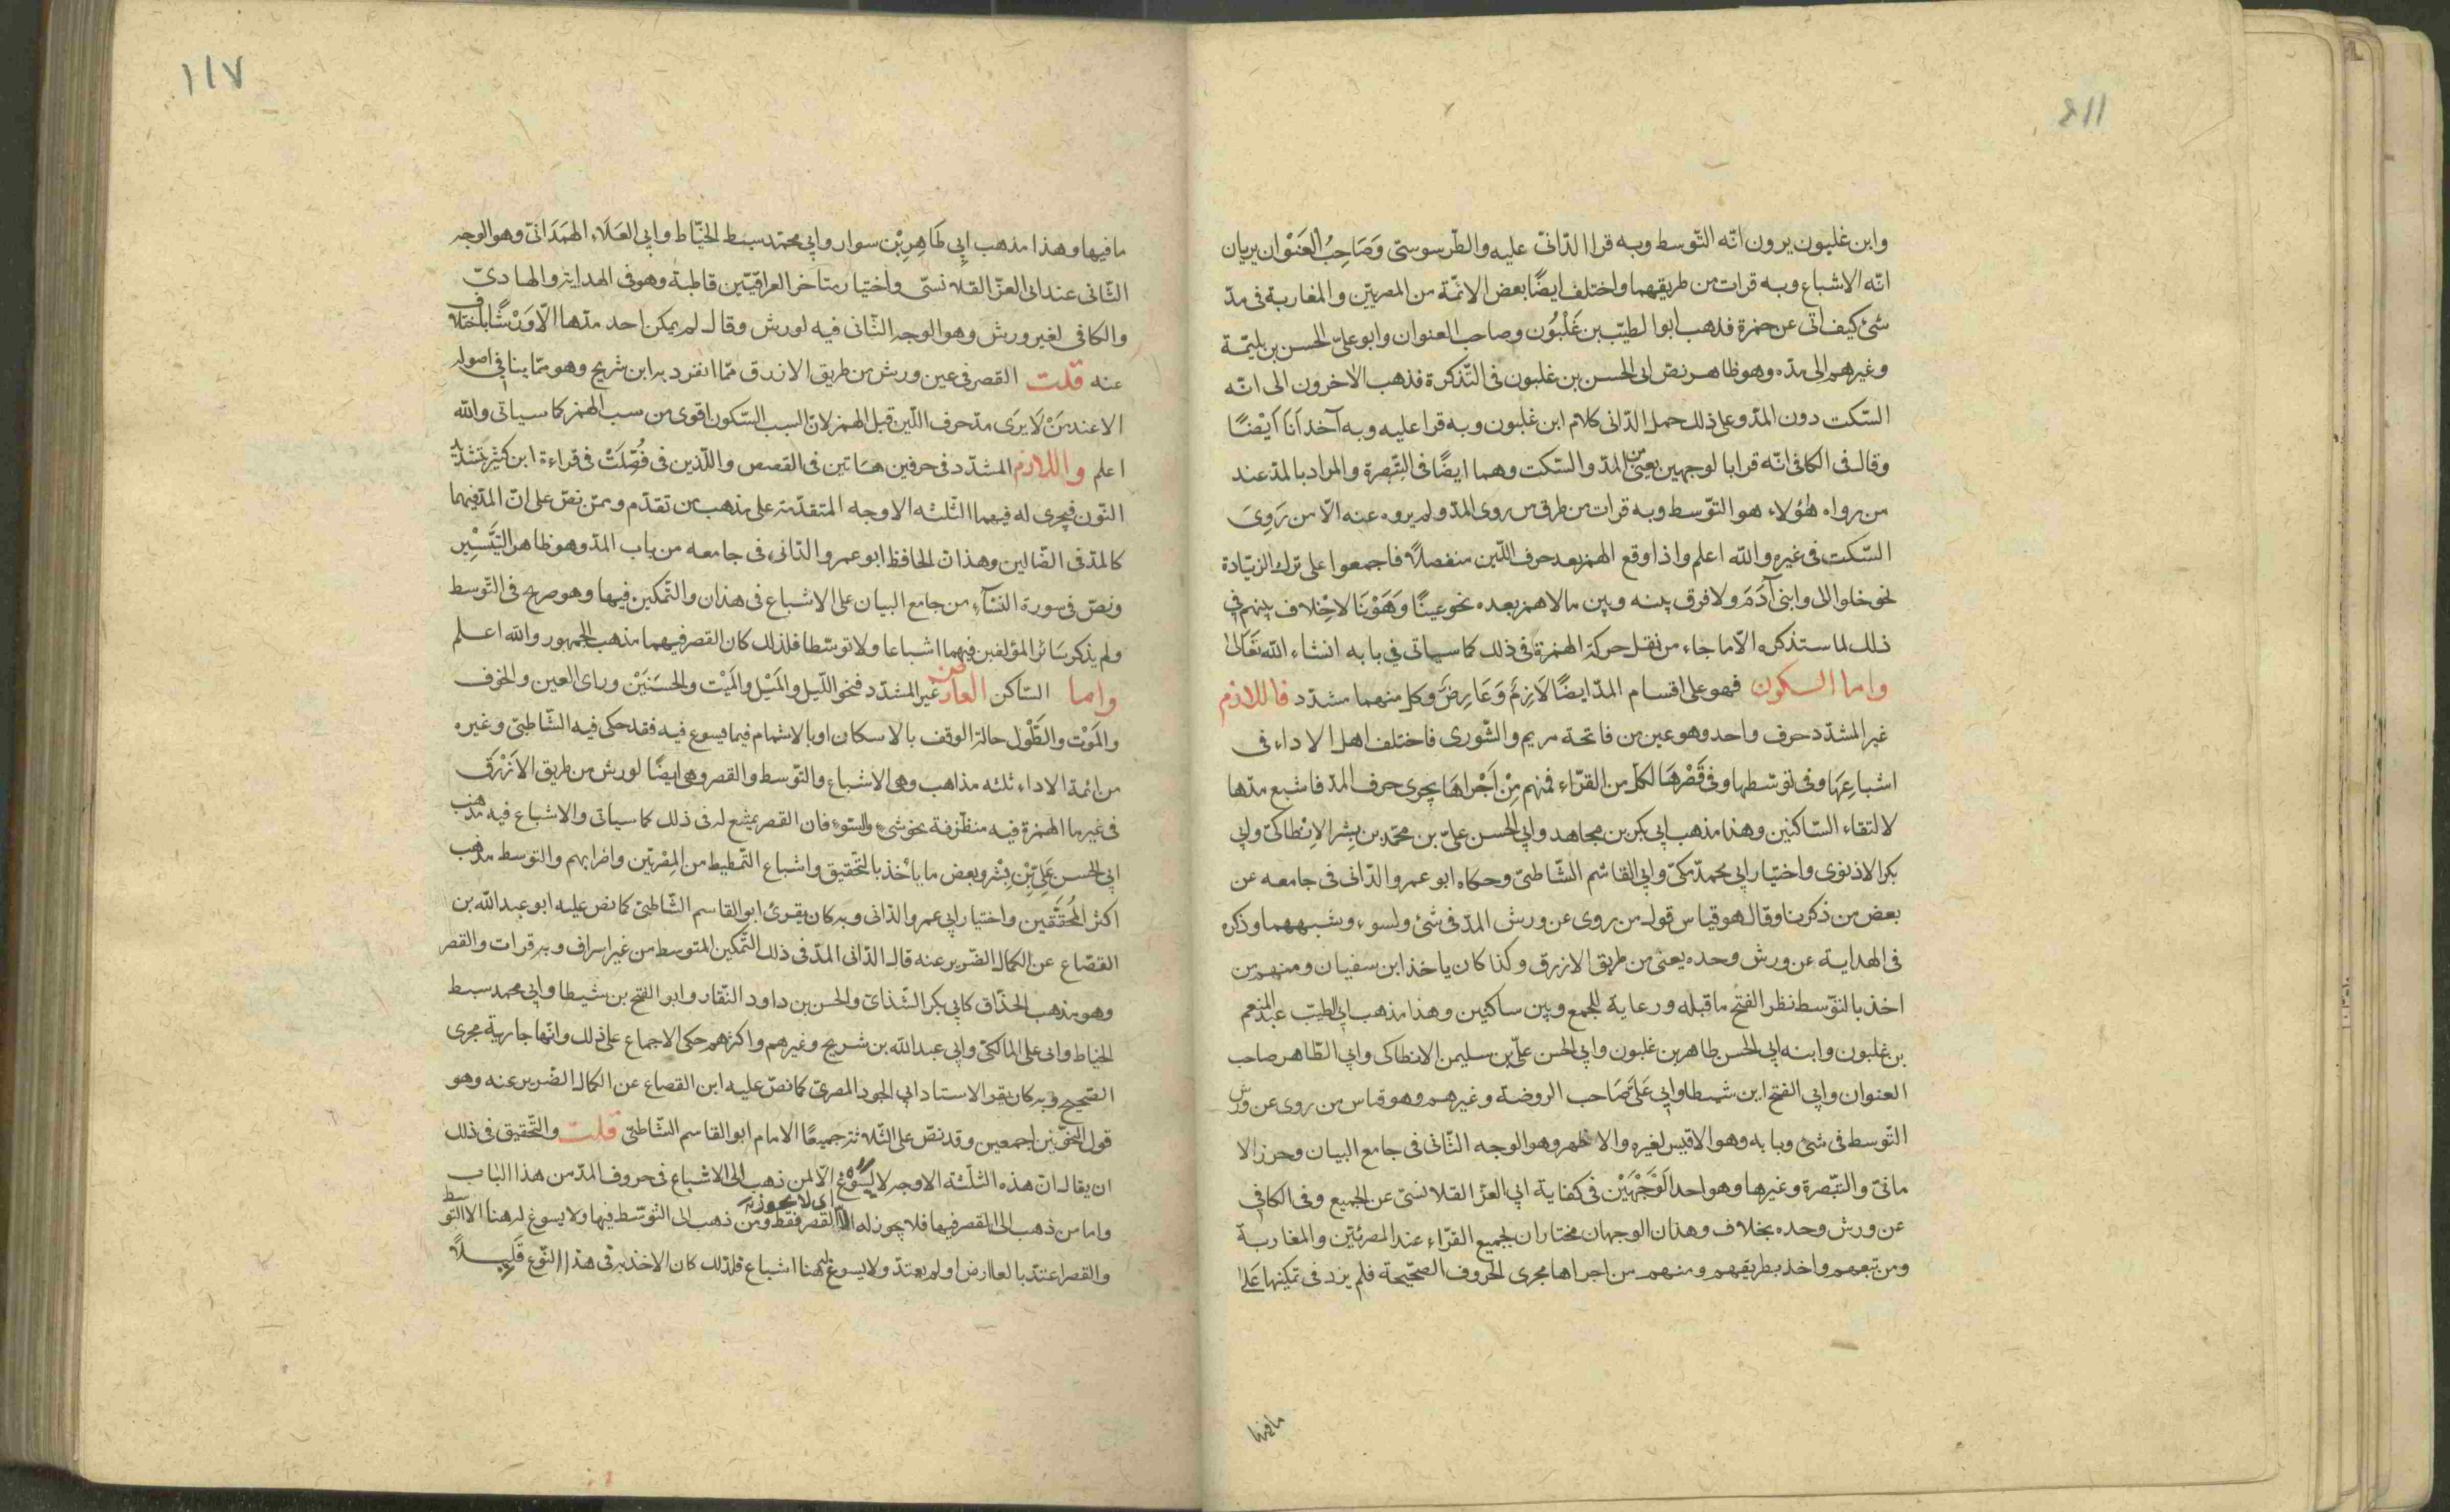 وابن غلبون يرون انّه التّوسط وبه قرا الدّانىّ عليه والطّرسوستى وَصَاحِبُ العَنْوان يريان
انّه الاشباع وبه قرات من طريقهما واختلف ايضًا بعض الائمّة من المصريّين والمغاربة فى مدّ
شئ كيف اتى عن حمزة فذهب ابوا لطيّب بن غَلْبُون وصاحب العنوان وابو علىّ الحسن بن بليّمة
وغيرهم الى مدّه وهو ظاهر نصّ ابى الحسن بن غلبون فى التّذكرة فذهب الاخرون الى انّه
السّكت دون المدّ وعلى ذلك حمل الدّانى كلام ابن غلبون وبه قرا عليه وبه آخذ اَنَا اَيْضًا
وقال فى الكافى انّه قرا بالوجهين يعنى من المدّ والسّكت وهما ايضًا فى التّبصرة والمراد بالمدّ عند
من رواه هٰؤلاء هو التّوسط وبه قرات من طرق من روى المدّ ولم يروه عنه الّا من رَوِىَ
السّكت فى غيره والله اعلم واذا وقع الهمز بعد حرف اللّين منفصلًا فاجمعوا على ترك الزّيادة
نحو خلوا الى وابنى آدَمَ ولا فرق بينه وبين ما لا همز بعده نحو عينًا وَهَوْنًا لا خِلاف بينهم فى
ذلك لما ستذكره الّا ما جاء من نقل حركة الهمزة فى ذلك كما سياتى فى بابه انشاء الله تَعَالىٰ
واما السكون فهو على اقسام المدّ ايضًا لَازِمٌ وَعَارِضٌ وكل منهما مشدّد فاللازم
غير المشدّد حرف واحد وهو عين من فاتحة مريم والشّورى فاختلف اهل الاداء فى
اشباعِهَا وفى توسّطها وفى قَصْرهَا لكلّ من القرّاء فمنهم مِنْ اَجْراهَا يجرى حرف المدّ فاشبع مدّها
لالتقاء السّاكنين وهذا مذهب ابى بكر بن مجاهد وابى الحسن علىّ بن محمّد بن بِشر الاِنْطاكىّ وابى
بكر الاذنوى واختيار ابى محمدّ مكىّ وابى القاسم الشّاطبىّ وحكاه ابو عمرو الدّانى فى جامعه عن
بعض من ذكرنا وقال هو قياس قول من روى عن ورش المدّ فى شئ ولسوء وشبههما وذكره
فى الهداية عن ورش وحده يعنى من طريق الازرق وكذا كان ياخذ ابن سفيان ومنهم من
اخذ بالتّوسط نظر الفتح ما قبله ورعاية للجمع وبين ساكنين وهذا مذهب ابى الطيّب عبد المنعم
بن غلبون وابنه ابى الحسن طاهر بن غلبون وابى الحسن علىّ بن سليمن الانطاكى وابى الطّاهر صاحب
العنوان وابى الفتح ابن شيطا وابى عَلىّ صَاحب الروضة وغيرهم وهو قياس من روى عن ورش
التّوسط فى شئ وبابه وهو الاقيس لغيره والاظهر وهو الوجه الثّانى فى جامع البيان وحرز الا
مانىّ والتّبصرة وغيرها وهو احد الوَجْهَيْن فى كفاية ابى العزّ القلانسىّ عن الجميع وفى الكافى
عن ورش وحده بخلاف وهذان الوجهان مختاران لجميع القرّاء عند المصريّين والمغاربة
ومن تبعهم واخذ بطريقهم ومنهم من اجراها مجرى الحروف الصّحيحة فلم يزد فى تمكينها عَلىٰ
مافيها
١١٧
ما فيها وهذا مذهب ابى طَاهِرِ بْن سوار وابى محمّد سبط الخيّاط وابى العَلَاء الهَمَدَانىّ وهو الوجه
الثّانى عند ابى العزّ القلانسىّ واختيار متاخر العراقيّين قاطبة وهو فى الهداية والهادىّ
والكافى لغير ورش وهو الوجه الثّانى فيه لورش وقال لم يمكن احد مدّها الّا وَرْشًا باختلاف
عنه قلت القصر فى عين ورش من طريق الازرق ممّا انفرد به ابن شريح وهو ممّا ينافى اصوله
الا عند مَنْ لَا يرَى مدّ حرف اللّين قبل الهمز لانّ السبب السّكون اقوى من سبب الهمز كما سياتى والله
اعلم واللازم المشدّد فى حرفين هَاتين فى القصص واللّذين فى فُصِّلَتْ فى قراءة ابن كثير بتشديد
النّون فيجرى له فيهما الثّلثه الاوجه المتقدّمة على مذهب من تقدّم وممّن نصّ على انّ المدّ فيهما
كالمدّ فى الضّالين وهذان الحافظ ابو عمرو الدّانى فى جامعه من باب المدّ وهو ظاهر التَّيْسِيرِ
ونصّ فى سورة النّسآء من جامع البيان على الاشباع فى هذان والتّمكين فيها وهو صريح فى التّوسط
ولم يذكر سَائر المؤلفين فيهما اشباعا ولا توسّطا فلذلك كان القصر فيهما مذهب الجمهور والله اعلم
واما السّاكن العارض غير المشدّد فنحو اللّيل والمَيْل والمَيْت والحسَنَيْن وراى العين والخوف
والمَوْت والطَّوْل حالة الوقف بالاسكان او بالاشمام فيما يسوع فيه فقد حكى فيه الشّاطبىّ وغيره
من ائمة الاداء ثلثه مذاهب وهى الاشباع والتّوسط والقصر وهى ايضًا لورش من طريق الاَزْرَق
فى غير ما الهمزة فيه متطرّفة نحو شئ والسّوء فان القصر يمتنع له فى ذلك كما سياتى والاشباع فيه مذهب
ابى الحسن عَلىِّ بْن بِشْر وبعض ما ياْخذ بالتّحقيق واشباع التّمطيط من المِصْريّين واضرابهم والتوسط مذهب
اكثر المُحَقّقين واختيار ابى عمرو الدّانى وبه كان يقرئ ابو القاسم الشّاطبىّ كما نصّ عليه ابو عبد الله بن
القصّاع عن الكمال الضّرير عنه قال الدّانى المدّ فى ذلك التّمكين المتوسط من غير اسراف وبه قرات والقصر
وهو مذهب الحذّاق كابى بكر الشّذائ والحسن بن داود النّقار وابو الفتح بن شيطا وابى محمد سبط
الخياط وابى على المالكىّ وابى عبد الله بن شريح وغيرهم واكثرهم حكى الاجماع على ذلك وانّها جارية مجرى
الصّحيح وبه كان يقر الاستاد ابى الجود المصرىّ كما نصّ عليه ابن القصاع عن الكمال الضّرير عنه وهو
قول النّحويّين اجمعين وقد نصّ على الثّلاثة جميعًا الامام ابو القاسم الشّاطبى قلت والتّحقيق فى ذلك
ان يقال انّ هذه الثّلثة الاوجه لا يسوغ الّا لمن ذهب الى الاشباع فى حروف المدّ من هذا الباب
واما من ذهب الى القصر فيها فلا يجوز له القصر فقط ومن ذهب الى التّوسّط فيها ولا يسوغ له هنا الا التوسط
والقصر اعتدّ بالعارض او لم يعتدّ ولا يسوغ هنا اشباع فلذلك كان الاخذ به فى هذا النّوع قَلِيلًا